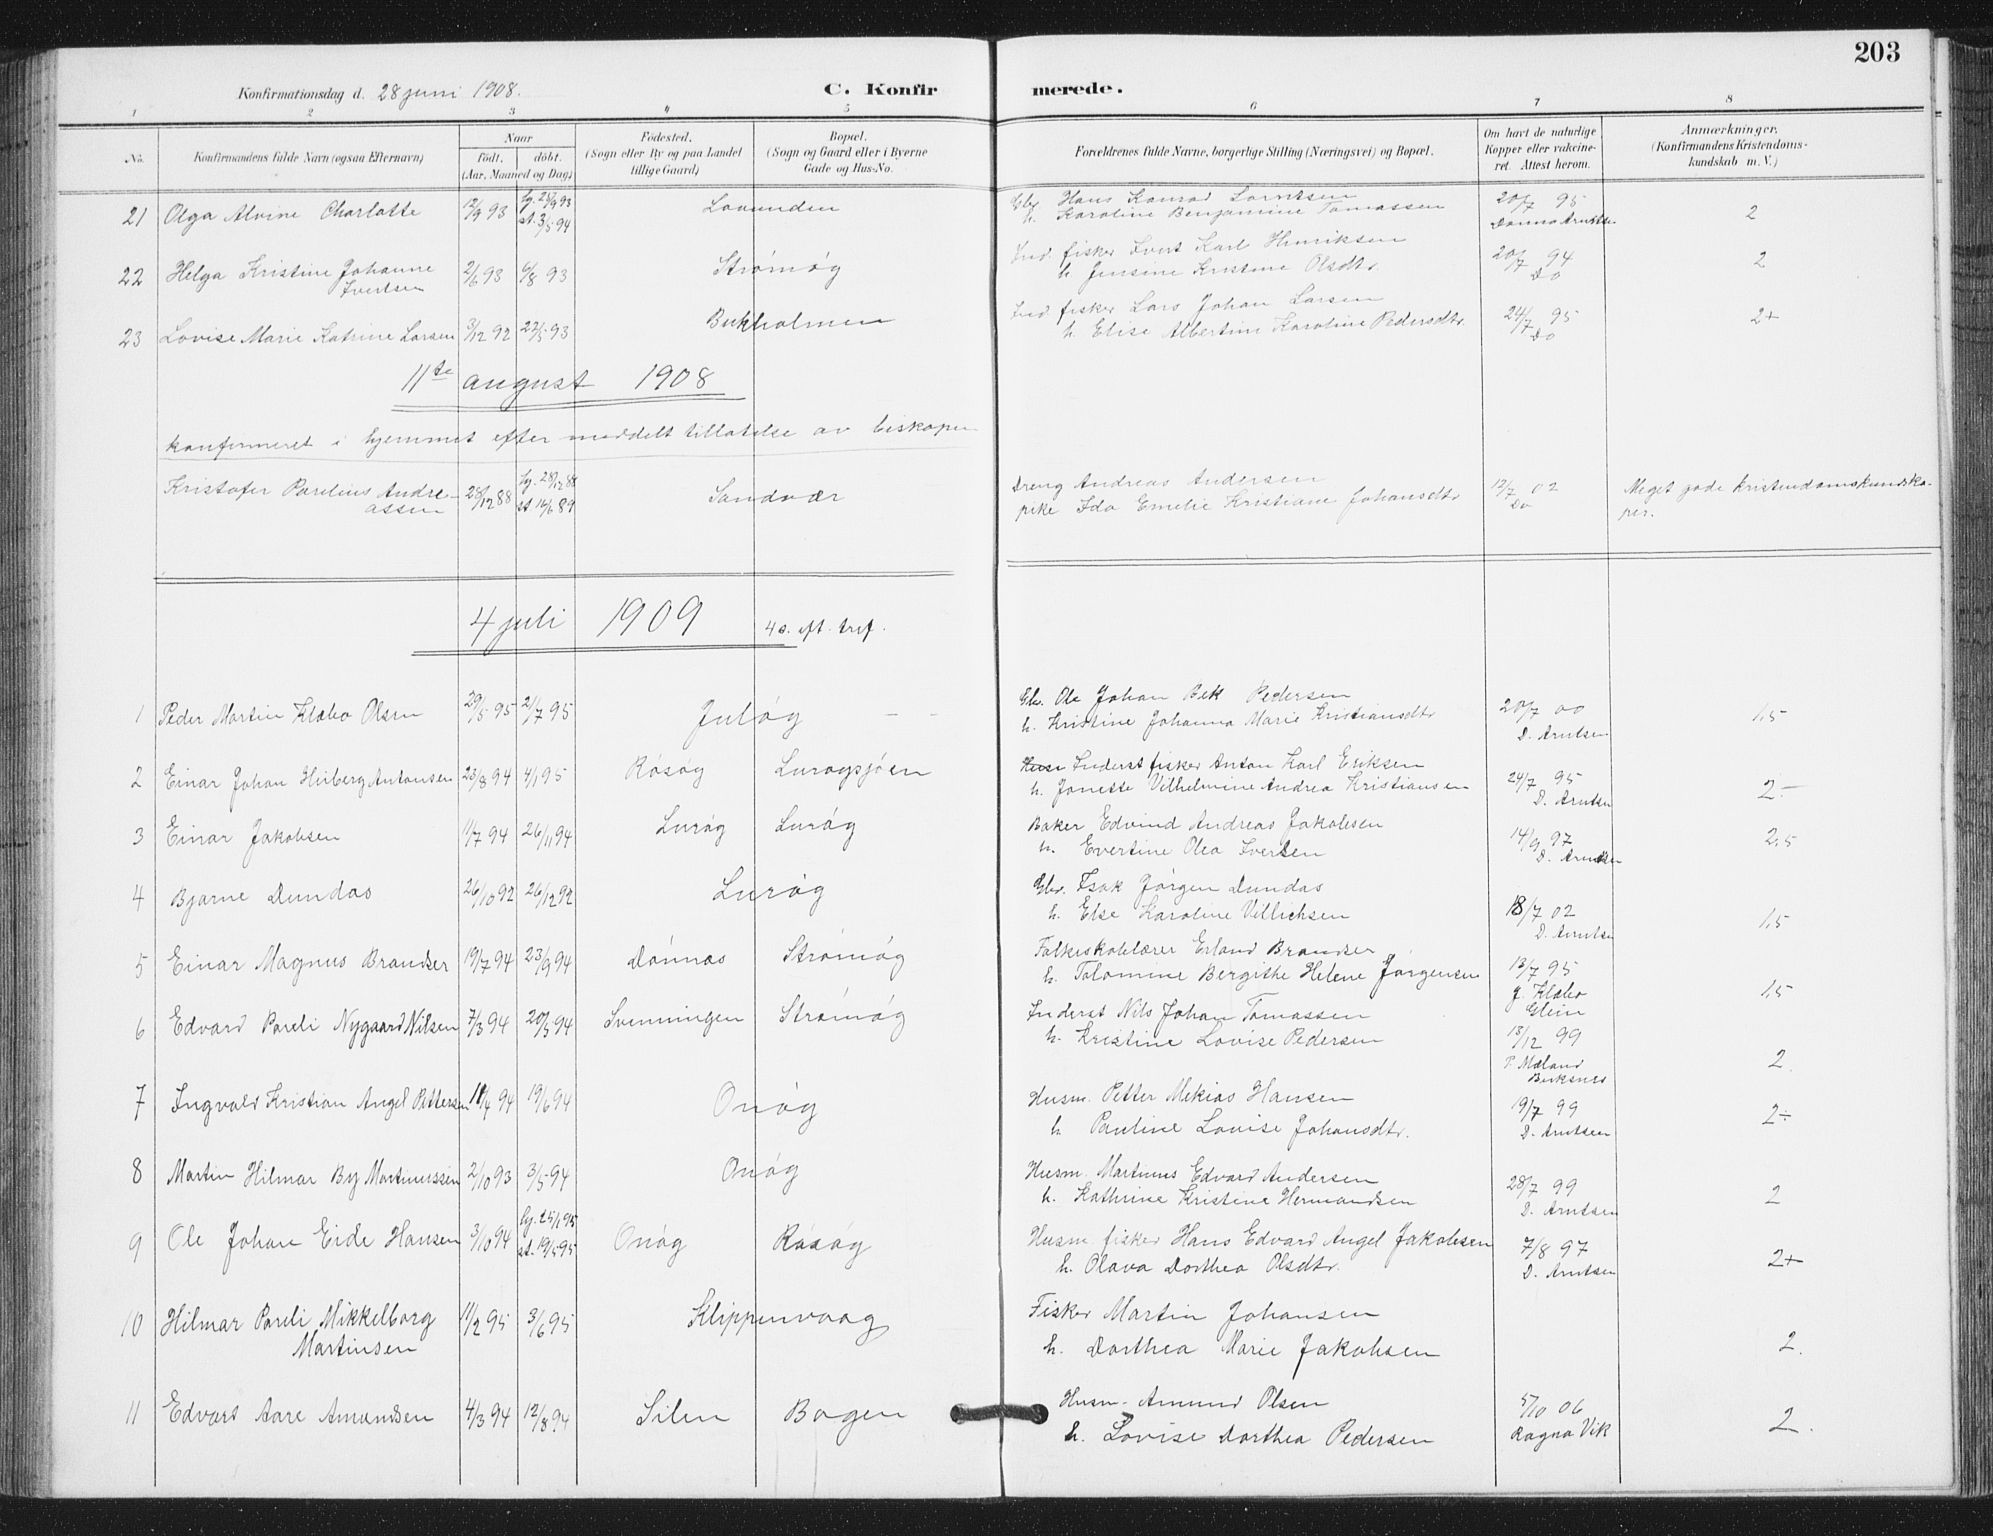 203
Konfirmationsdag d. 28 juni 1908.
C. Konfirmerede.
1 2 3 4 5 6 7 8
No. Konfirmandens fulde Navn (ogsaa Efternavn) Naar født, døbt. (Aar, Maaned og Dag) Fødested. (Sogn eller By og paa Landet tillige Gaard) Bopæl. (Sogn og Gaard eller i Byerne Gade og Hus-No. Forældrenes fulde Navne, borgerlige Stilling (Næringsvei) og Bopæl. Om havt de naturlige Kopper eller vaccineret. Attest herom. Anmærkninger. (Konfirmandens Kristendomskundskab m. V.)
21 Olga Alvine Charlotte 12/9 93 hj. 23/9 93 st. 3/5 94 Lovunden Gbr. Hans Konrad Lorntsen 20/7 95
h. Karoline Benjamine Tomassen Donna Arntsen 2
22 Helga Kristine Johanne Ivertsen 2/6 93 6/8 93 Strømøg Ind. fisker Ivert Karl Henriksen 20/7 94
h. Jensine Kristine Olsdtr. Do 2
23 Lovise Marie Katrine Larsen 3/12 92 22/5 93 Bukholmen Ind fisker Lars Johan Larsen 24/7 95
h. Elise Albertine Karoline Pedersdtr. Do 2+
11te august 1908
konfirmeret i hjemmet efter meddelt tillatelse av biskopen
Kristofer Parelius Andreassen 28/12 88 hj. 28/12 88 st 16/6 89 Sandvær Dreng Andreas Andersen 12/7 02 Meget gode kristendomskundska-
pike Ida Emelie Kristiane Johansdtr. Do per.
4 juli 1909 4 s. eft. tref.
1 Peder Martin Klæbo Olsen 29/5 95 2/7 95 Juløg - - Gbr. Ole Johan Bek Pedersen 20/7 00
h. Kristine Johanna Marie Kristiansdtr D. Arntsen 1,5
2 Einar Johan Hirberg Antonsen 23/8 94 4/1 95 Røsøg Lurøgsjøen Inderst fisker Anton Karl Eriksen 24/7 95
h. Jonette Vilhelmine Andrea Kristiansen D. Arntsen 2-
3 Einar Jakobsen 11/7 94 26/11 94 Lurøg Lurøg Baker Edvind Andreas Jakobsen 14/9 97
h. Evertine Olea Iversen D. Arntsen 2,5
4 Bjarne Dundas 26/10 92 26/12 92 Lurøg Gbr. Isak Jørgen Dundas 18/7 02
h. Else Karoline Villichsen D. Arntsen 1,5
5 Einar Magnus Brandser 19/7 94 23/9 94 Dønnas Strømøg Folkeskolelærer Erland Brandser 13/7 95
h. Tolomine Bergithe Helene Jørgensen J. Klæbo Glein 1,5
6 Edvard Pareli Nygaard Nilsen 7/3 94 20/5 94 Svenningen Strømøg Inderst Nils Johan Tomassen 13/12 99
h. Kristine Lovise Pedersen P. Mæland Buksnes 2
7 Ingvald Kristian Angel Pettersen 11/4 94 19/6 94 Onøg Husm. Petter Mekias Hansen 19/7 99
h. Pauline Lovise Johansdtr. D. Arntsen 2÷
8 Martin Hilmar By Martinussen 2/10 93 3/5 94 Onøg Husm. Martinus Edvard Andersen 28/7 99
h. Kathrine Kristine Hermandsen D. Arntsen 2
9 Ole Johan Eide Hansen 3/10 94 hj. 25/1 95 st. 19/5 95 Onøg Røsøg Husm. fisker Hans Edvard Angel Jakobsen 7/8 97
h. Olava Dorthea Olsdtr. D. Arntsen 2+
10 Hilmar Pareli Mikkelborg Martinsen 11/2 95 3/6 95 Klippenvaag Fisker Martin Johansen
h. Dorthea Marie Jakobsen 2.
11 Edvart Aare Amundsen 4/3 94 12/8 94 Silen Bogen Husm. Amund Olsen 5/10 06
h. Lovise Dorthea Pedersen Ragna Vik 2.